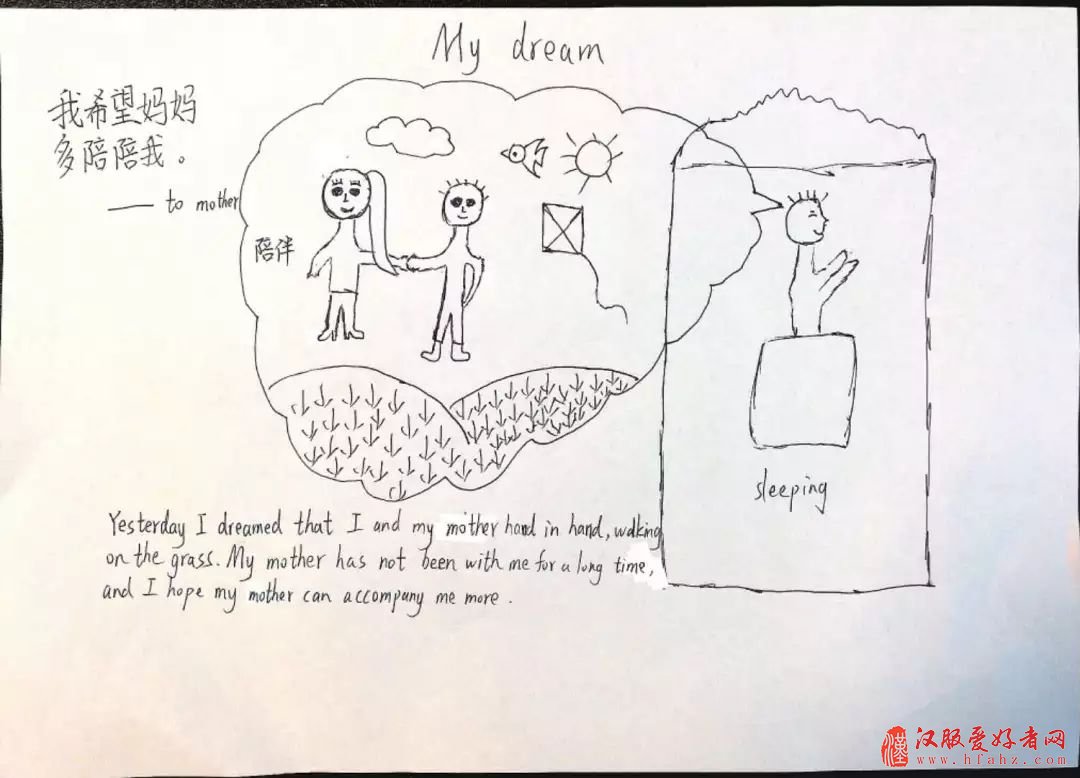 My dream
我希望妈妈
多陪陪我。
—— to mother
陪伴
sleeping
Yesterday I dreamed that I and my mother hand in hand, walking
on the grass. My mother has not been with me for a long time,
and I hope my mother can accompany me more.
漢
汉服爱好者网
www.hfahz.com